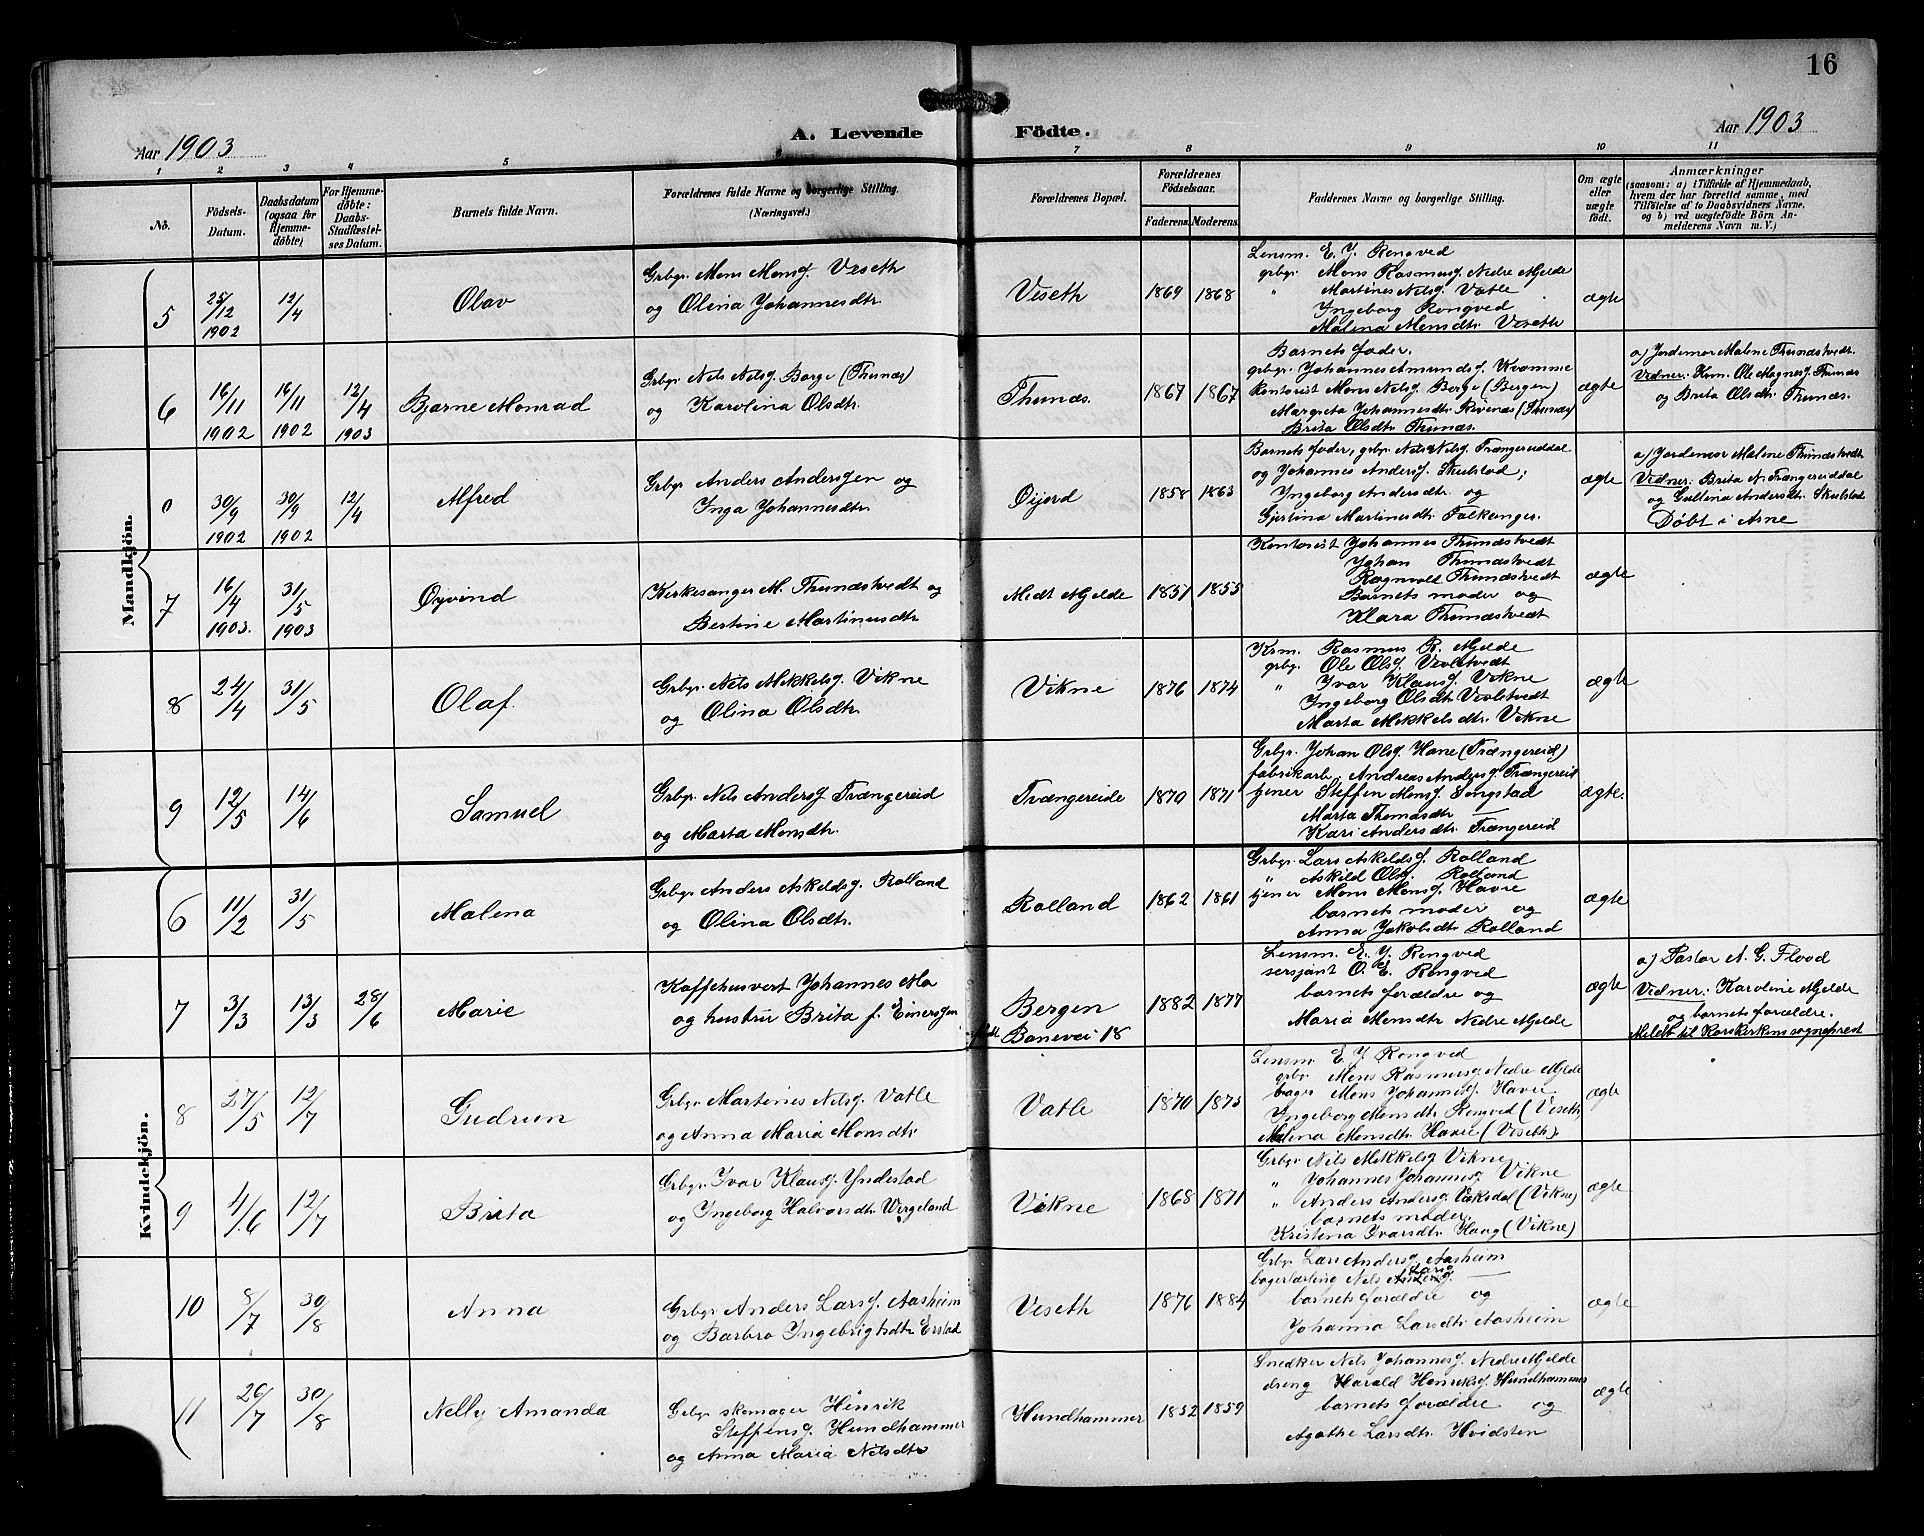 16
Aar 1903
A. Levende Födte.
Aar 1903
1 2 3 4 5 6 7 8 9 10 11
No.
Födsels-Datum.
Daabsdatum (ogsaa for Hjemmedöbte)
For Hjemmedöbte: Daabs-Stadfæstelses Datum.
Barnets fulde Navn.
Forældrenes fulde Navne og borgerlige Stilling. (Næringsvei.)
Forældrenes Bopæl.
Forældrenes Födselsaar.
Faderens. Moderens.
Faddernes Navne og borgerlige Stilling.
Om ægte eller uægte födt.
Anmærkninger
(saasom: a) i Tilfælde af Hjemmedaab, hvem der har forrettet samme, med Tilföielse af to Daabsvidners Navne, og b) ved uægtefödte Börn Anmelderens Navn m. V.)
Mandkjön.
5 25/12 1902 12/4 Olav
Grbgr. Mons Monsf. Veseth
og Olina Johannesdtr.
Veseth 1869 1868
Lensm. E. J. Rongved
grbgr. Mons Rasmusf. Nedre Mjelde
" Martines Nilsf. Vatle
Ingeborg Rongved
Malena Monsdtr. Veseth
ægte
6 16/11 1902 16/11 1902 12/4 1903 Bjarne Monrad
Grbgr. Nels Nelsf. Borge (Thunæs)
og Karolina Olsdtr.
Thunæs. 1867 1867
Barnets fader.
grbgr. Johannes Amundsf. Kvamme
kontorist Mons Nelsf. Borge (Bergen)
Margreta Johannesdtr. Revenæs (Thunæs)
Brita Olsdtr. Thunæs.
ægte
a) Jordemor Malene Thunæstvedt.
Vidner: Ole Magnesf. Thunæs
og Brita Olsdtr. Thunæs.
0 30/9 1902 30/9 1902 12/4 Alfred
Grbgr. Anders Andersen og
Inga Johannesdtr.
Öijord 1858 1863
Barnets fader, grbgr. Nels Nelsf. Trængereiddal
og Johannes Andersf. Skulstad;
Ingeborg Andersdtr. og
Gjertina Martinesdtr. Falkanger.
ægte
a) Jordemor Malene Thunæstvedt
Vidner: Brita N. Trængereiddal
og Andersdtr. Skulstad
Döbt i Arne
7 16/4 1903. 31/5 1903 Øyvind
Kirkesanger M. Thunæstvedt og
Bertine Martinusdtr
Midt Mjelde 1851 1855
Kontorist Johannes Thunæstvedt
Johan Thunæstvedt
Ragnvald Thunæstvedt
Barnets moder og
Klara Thunæstvedt
ægte
8 24/4 31/5 Olaf.
Grbgr. Nels Mikkelsf. Vikne
og Olina Olsdtr.
Vikne 1876 1874
Ksm. Rasmus R. Mjelde
grbgr. Ole Olsf.
" Ivar Klausf. Vikne
Ingeborg Olsdtr.
Marta Mikkelsdtr. Vikne
ægte
9 12/5 14/6 Samuel
Grbgr. Nels Andersf Trængereid
og Marta Monsdtr.
Trængereide 1870 1871
Grbgr. Johan Olsf. Hane (Trængereid)
fabrikarb. Andreas Andersf. Trængereid
tjener Steffen Monsf. Songstad
Marta Thomasdtr —
Kari Andersdtr. Trængereid
ægte.
Kvindekjön.
6 11/2 31/5 Malena
Grbgr. Anders Askeldsf. Rolland
og Olina Olsdtr.
Rolland 1862 1861
Grbgr. Lars Askeldsf. Rolland
" Askild Olsf. Rolland
tjener Mons Monsf. Havre
barnets moder og
Anna Jakobsdtr. Rolland
ægte
7 3/3 13/3 28/6 Marie
Kaffehusvert Johannes Mo
og hustru Brita f. Einersen
Bergen
Banevei 18
1882 1877
Lensm. E. J. Rongved
sersjant O. E. Rongved
barnets forældre og
Maria Monsdtr. Nedre Mjelde
ægte
a) Pastor A. G. Flood
Vidner: Karoline Mjelde
og barnets forældre.
Meldt til Korskirkens sogneprest
8 27/5 12/7 Gudrun
Grbgr. Martines Nilsf. Vatle
og Anna Maria Monsdtr.
Vatle 1870 1873
Lensm. E. J. Rongved
grbgr. Mons Rasmusf. Nedre Mjelde
bager Mons Johannesf. Havre
Ingeborg Monsdtr. Rongved (Veseth)
Malena Monsdtr. Havre (Veseth).
ægte
9 4/6 12/7 Brita
Grbgr. Ivar Klausf. Yndestad
og Ingeborg Halvorsdtr. Wergeland
Vikne 1868 1871
Grbgr. Nils Mikkelsf. Vikne
" Johannes Johannesf. Vikne
" Anders Andersf. Vaksdal (Vikne)
barnets moder.
Kristina Ivarsdtr. Haug (Vikne)
ægte
10 8/7 30/8 Anna
Grbgr. Anders Larsf. Aasheim
og Barbro Ingebrigtsdtr. Erstad
Veseth 1876 1884
Grbgr. Lars Andersf. Aasheim
bagerlærling Nels Larsf. —
barnets forældre og
Johanna Larsdtr. Aasheim
ægte
11 26/7 30/8 Nelly Amanda
Grbgr. skomager Henrik
Steffensf. Hundhammer
og Anna Maria Nelsdtr
Hundhammer 1852 1859
Snedker Nels Johannesf. Nedre Mjelde
dreng Harald Henriksf. Hundhammer
barnets forældre og
Agathe Larsdtr. Hvidsten
ægte